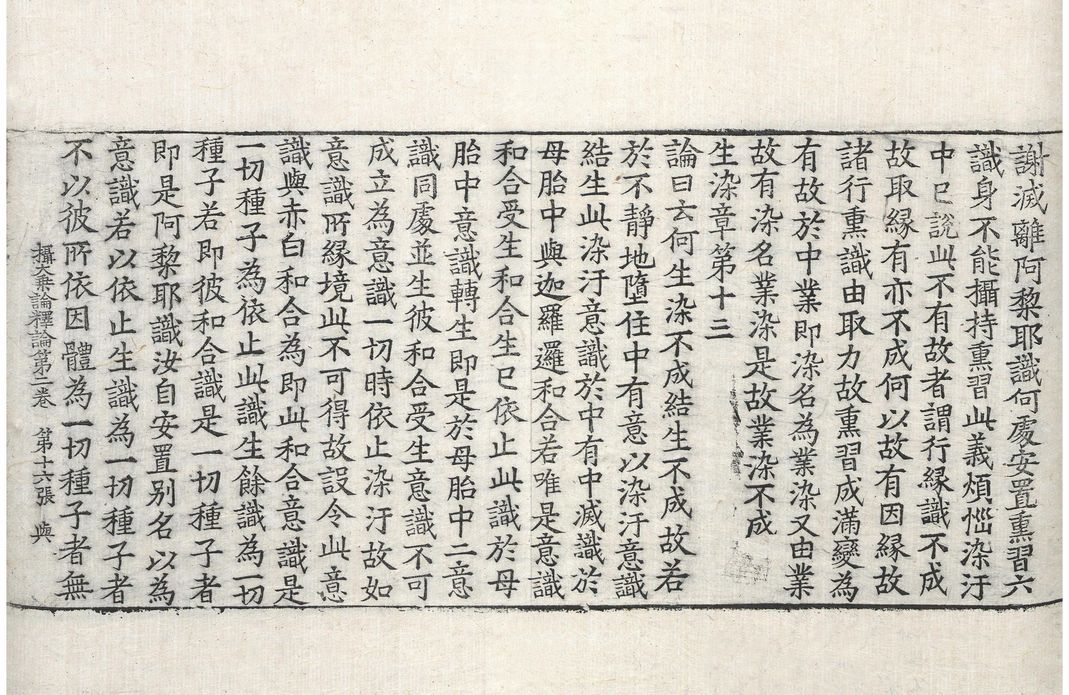 謝滅離阿黎耶識何處安置熏習六
識身不能攝持熏習此義煩惱染汙
中已說此不有故者謂行緣識不成
故取緣有亦不成何以故有因緣故
諸行熏識由取力故熏習成滿變為
有故於中業即染名為業染又由業
故有染名業染是故業染不成
生染章第十三
論曰云何生染不成結生不成故若
於不靜地墮住中有意以染汙意識
結生此染汙意識於中有中滅識於
母胎中與迦羅邏和合若唯是意識
和合受生和合生已依止此識於母
胎中意識轉生即是於母胎中二意
識同處並生彼和合受生意識不可
成立為意識一切時依止染汙故如
意識所緣境此不可得故設令此意
識與赤白和合為即此和合意識是
一切種子為依止此識生餘識為一切
種子若即彼和合識是一切種子者
即是阿黎耶識汝自安置別名以為
意識若以依止生識為一切種子者
不以彼所依因體為一切種子者無
攝大乘論釋論第二卷 第十六張 與